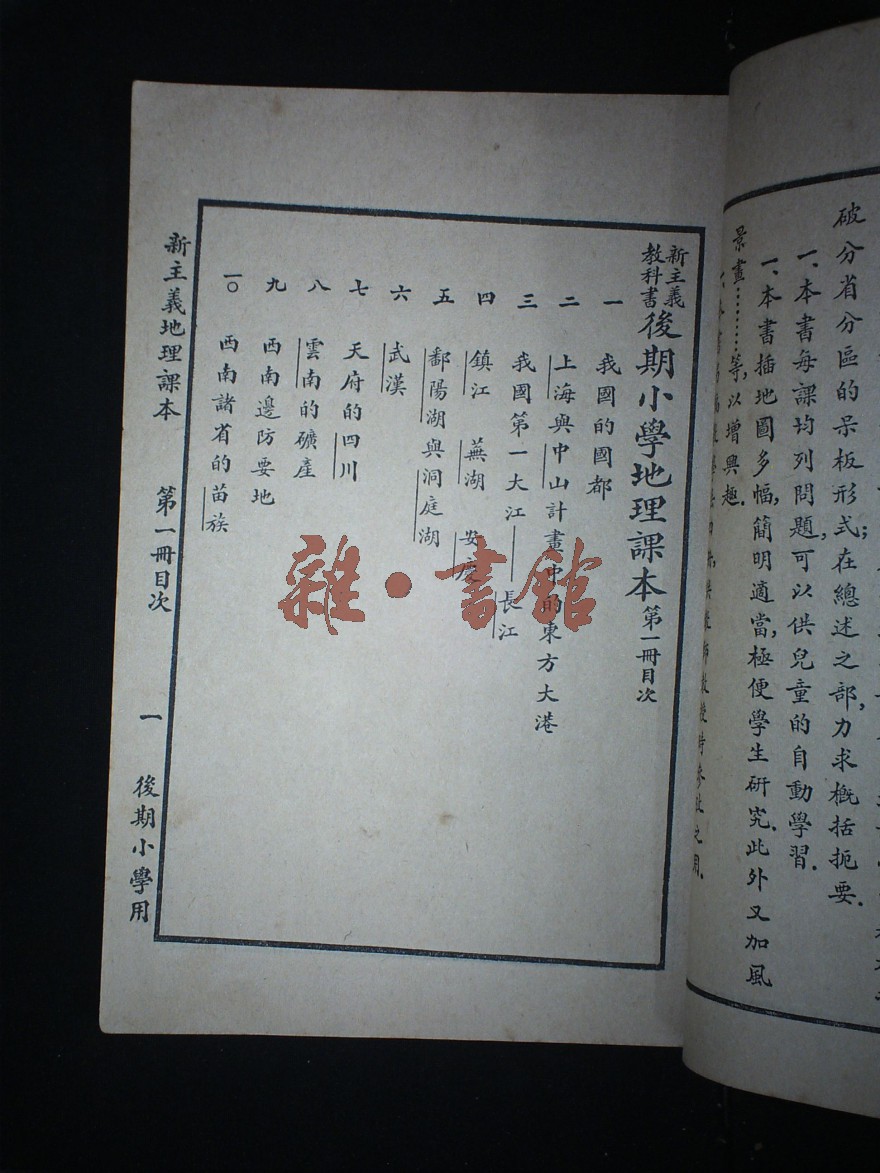 破分省分區的呆板形式；在總述之部，力求概括扼要．
一、本書每課均列問題，可以供兒童的自動學習．
一、本書插地圖多幅，簡明適當，極便學生研究．此外又加風
景畫………等，以增興趣．
新主義教科書 後期小學地理課本 第一冊目次
一 我國的國都
二 上海與中山計畫中的東方大港
三 我國第一大江——長江
四 鎮江 蕪湖 安慶
五 鄱陽湖與洞庭湖
六 武漢
七 天府的四川
八 雲南的礦產
九 西南邊防要地
一〇 西南諸省的苗族
新主義地理課本 第一冊目次 一 後期小學用
雜·書館